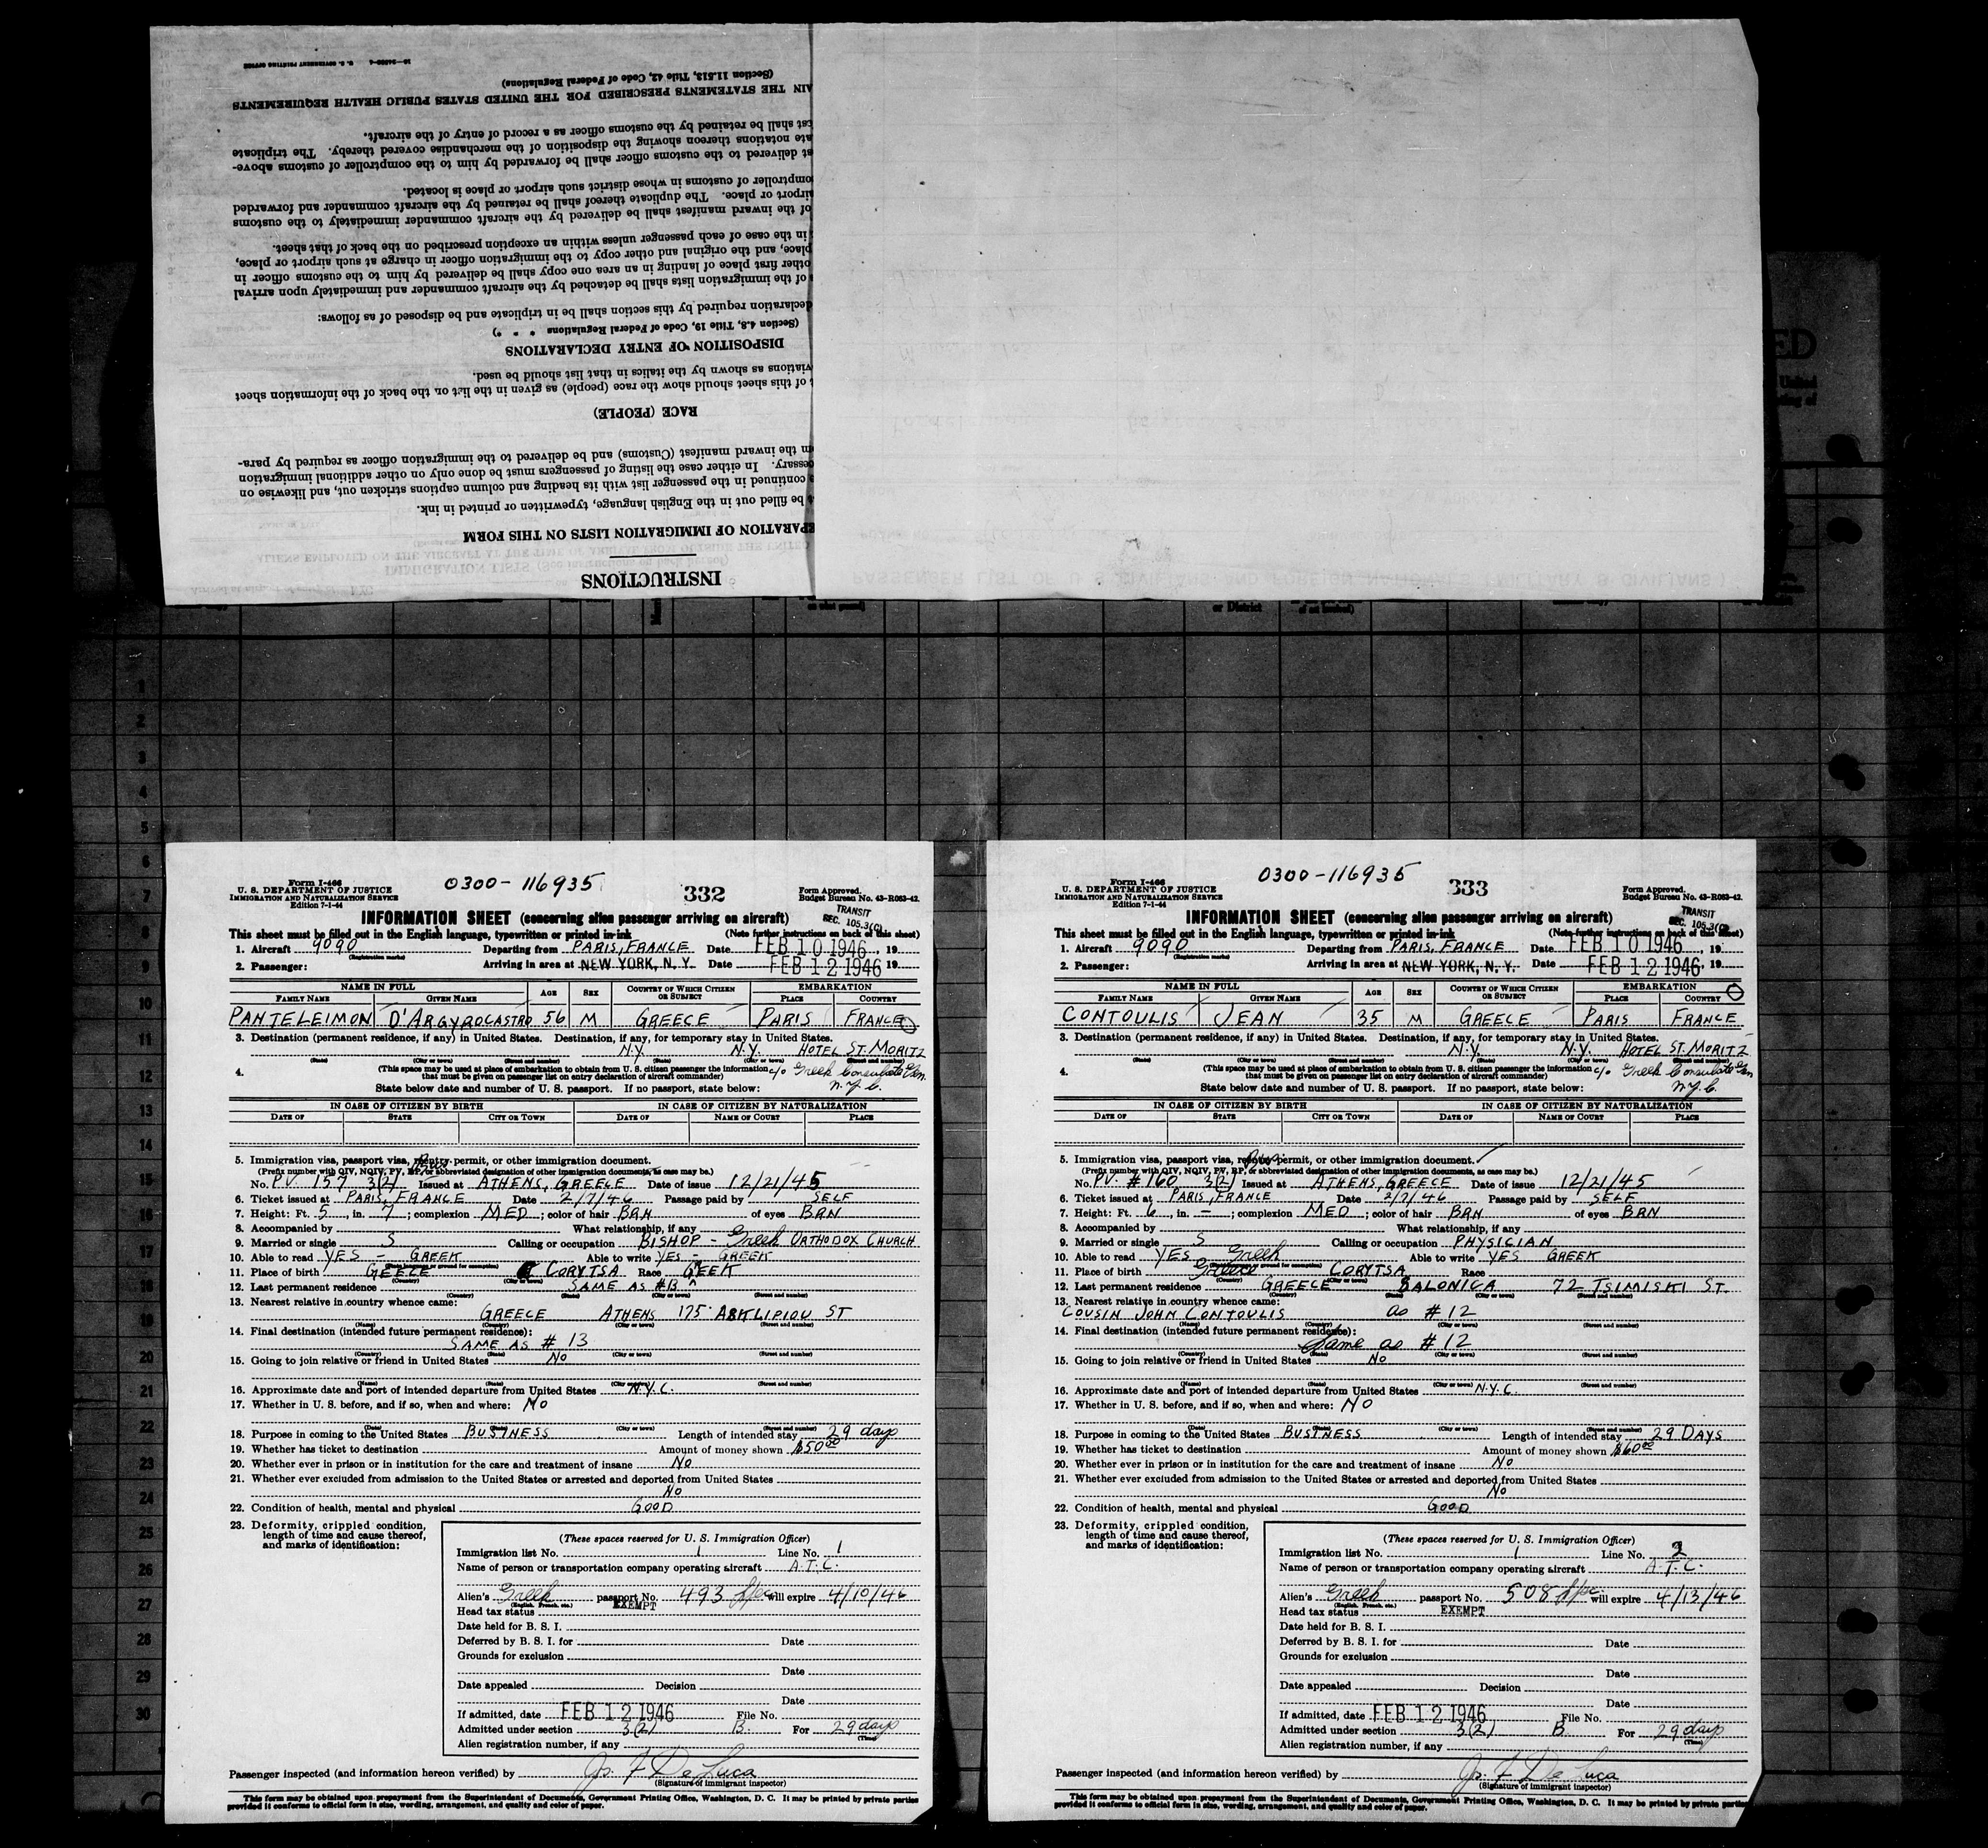 16—24500-4 U. S. GOVERNMENT PRINTING OFFICE
(Section 11.513, Title 42, Code of Federal Regulations)
AIN THE STATEMENTS PRESCRIBED FOR THE UNITED STATES PUBLIC HEALTH REQUIREMENTS
est shall be retained by the customs officer as a record of entry of the aircraft.
ate notations thereon showing the disposition of the merchandise covered thereby. The triplicate
st delivered to the customs officer shall be forwarded by him to the comptroller of customs above-
omptroller of customs in whose district such airport or place is located.
irport or place. The duplicate thereof shall be retained by the aircraft commander and forwarded
of the inward manifest shall be delivered by the aircraft commander immediately to the customs
in the case of each passenger unless within an exception prescribed on the back of that sheet.
place, and the original and other copy to the immigration officer in charge at such airport or place,
other first place of landing in an area one copy shall be delivered by him to the customs officer in
of the immigration lists shall be detached by the aircraft commander and immediately upon arrival
declaration required by this section shall be in triplicate and be disposed of as follows:
(Section 4.8, Title 19, Code of Federal Regulations * * *)
DISPOSITION OF ENTRY DECLARATIONS
viations as shown by the italics in that list should be used.
of this sheet should show the race (people) as given in the list on the back of the information sheet
RACE (PEOPLE)
n the inward manifest (Customs) and be delivered to the immigration officer as required by para-
cessary. In either case the listing of passengers must be done only on other additional immigration
continued in the passenger list with its heading and column captions stricken out, and likewise on
be filled out in the English language, typewritten or printed in ink.
EPARATION OF IMMIGRATION LISTS ON THIS FORM
INSTRUCTIONS
PASSENGER LIST OF U S CIVILIANS AND FOREIGN NATIONALS (MILITARY & CIVILIANS)
ED
or District
1
2
3
4
5
6
7
8
9
10
11
12
13
14
15
16
17
18
19
20
21
22
23
24
25
26
27
28
29
30
Form I-466
U. S. DEPARTMENT OF JUSTICE
IMMIGRATION AND NATURALIZATION SERVICE
Edition 7-1-44
0300-116935
332
Form Approved.
Budget Bureau No. 43-R063-42.
TRANSIT
SEC. 105.3(C)
INFORMATION SHEET (concerning alien passenger arriving on aircraft)
This sheet must be filled out in the English language, typewritten or printed in ink (Note further instructions on back of this sheet)
1. Aircraft 9090 Departing from PARIS, FRANCE Date FEB 10 1946, 19
(Registration marks)
2. Passenger: Arriving in area at NEW YORK, N. Y. Date FEB 12 1946 19
NAME IN FULL AGE SEX COUNTRY OF WHICH CITIZEN OR SUBJECT EMBARKATION
FAMILY NAME GIVEN NAME PLACE COUNTRY
PANTELEIMON D'ARGYROCASTRO 56 M GREECE PARIS FRANCE
3. Destination (permanent residence, if any) in United States. Destination, if any, for temporary stay in United States.
N.Y. N.Y. HOTEL ST. MORITZ
(State) (City or town) (Street and number) (State) (City or town) (Street and number)
4. (This space may be used at place of embarkation to obtain from U. S. citizen passenger the information c/o Greek Consulate Gen.
that must be given on passenger list on entry declaration of aircraft commander) N.Y.C.
State below date and number of U. S. passport. If no passport, state below:
IN CASE OF CITIZEN BY BIRTH IN CASE OF CITIZEN BY NATURALIZATION
DATE OF STATE CITY OR TOWN DATE OF NAME OF COURT PLACE
5. Immigration visa, passport visa, reentry permit, or other immigration document.
(Prefix number with QIV, NQIV, PV, RP, or abbreviated designation of other immigration documents, as case may be.)
No. PV 157 3(2) Issued at ATHENS, GREECE Date of issue 12/21/45
6. Ticket issued at PARIS, FRANCE Date 2/7/46 Passage paid by SELF
7. Height: Ft. 5, in. 7; complexion MED; color of hair BRN of eyes BRN
8. Accompanied by What relationship, if any
9. Married or single S Calling or occupation BISHOP - Greek ORTHODOX CHURCH
10. Able to read YES - GREEK Able to write YES - GREEK
(State language or ground for exemption)
11. Place of birth GEECE CORYTSA Race GEEK
(Country) (City or town)
12. Last permanent residence SAME AS #13
(Country) (State) (City or town) (Street and number)
13. Nearest relative in country whence came:
GREECE ATHENS 175 ASKLIPIOU ST
(Name) (Country) (City or town) (Street and number)
14. Final destination (intended future permanent residence):
SAME AS # 13
(Country) (State) (City or town) (Street and number)
15. Going to join relative or friend in United States No
(Name) (State) (City or town) (Street and number)
16. Approximate date and port of intended departure from United States N.Y.C.
17. Whether in U. S. before, and if so, when and where: NO
(Date) (State) (City or town) (Street and number)
18. Purpose in coming to the United States BUSINESS Length of intended stay 29 days
19. Whether has ticket to destination Amount of money shown $50.00
20. Whether ever in prison or in institution for the care and treatment of insane No
21. Whether ever excluded from admission to the United States or arrested and deported from United States
No
22. Condition of health, mental and physical GOOD
23. Deformity, crippled condition, length of time and cause thereof, and marks of identification:
(These spaces reserved for U. S. Immigration Officer)
Immigration list No. 1 Line No. 1
Name of person or transportation company operating aircraft A.T.C.
Alien's Greek passport No. 493 will expire 4/10/46
(English, French, etc.)
Head tax status EXEMPT
Date held for B. S. I.
Deferred by B. S. I. for Date
Grounds for exclusion
Date
Date appealed Decision
Date
If admitted, date FEB 12 1946 File No.
Admitted under section 3(2) B. For 29 days
(Time)
Alien registration number, if any
Passenger inspected (and information hereon verified) by Js. F De Luca
(Signature of immigrant inspector)
This form may be obtained upon prepayment from the Superintendent of Documents, Government Printing Office, Washington, D. C. It may be printed by private parties
provided it conforms to official form in size, wording, arrangement, and quality and color of paper.
Form I-466
U. S. DEPARTMENT OF JUSTICE
IMMIGRATION AND NATURALIZATION SERVICE
Edition 7-1-44
0300-116935
333
Form Approved.
Budget Bureau No. 43-R063-42.
TRANSIT
SEC. 105.3(C)
INFORMATION SHEET (concerning alien passenger arriving on aircraft)
This sheet must be filled out in the English language, typewritten or printed in ink (Note further instructions on back of this sheet)
1. Aircraft 9090 Departing from PARIS, FRANCE Date FEB 10 1946, 19
(Registration marks)
2. Passenger: Arriving in area at NEW YORK, N. Y. Date FEB 12 1946, 19
NAME IN FULL AGE SEX COUNTRY OF WHICH CITIZEN OR SUBJECT EMBARKATION
FAMILY NAME GIVEN NAME PLACE COUNTRY
CONTOULIS JEAN 35 M GREECE PARIS FRANCE
3. Destination (permanent residence, if any) in United States. Destination, if any, for temporary stay in United States.
N.Y. N.Y. HOTEL ST. MORITZ
(State) (City or town) (Street and number) (State) (City or town) (Street and number)
4. (This space may be used at place of embarkation to obtain from U. S. citizen passenger the information c/o Greek Consulate Gen
that must be given on passenger list on entry declaration of aircraft commander) N.Y.C.
State below date and number of U. S. passport. If no passport, state below:
IN CASE OF CITIZEN BY BIRTH IN CASE OF CITIZEN BY NATURALIZATION
DATE OF STATE CITY OR TOWN DATE OF NAME OF COURT PLACE
5. Immigration visa, passport visa, reentry permit, or other immigration document.
(Prefix number with QIV, NQIV, PV, RP, or abbreviated designation of other immigration documents, as case may be.)
No. PV. #160 3(2) Issued at ATHENS, GREECE Date of issue 12/21/45
6. Ticket issued at PARIS, FRANCE Date 2/7/46 Passage paid by SELF
7. Height: Ft. 6, in. -; complexion MED; color of hair BRN of eyes BRN
8. Accompanied by What relationship, if any
9. Married or single S Calling or occupation PHYSICIAN
10. Able to read YES Greek Able to write YES GREEK
(State language or ground for exemption)
11. Place of birth Greece CORYTSA Race
(Country) (City or town)
12. Last permanent residence GREECE SALONICA 72 TSIMISKI ST.
(Country) (State) (City or town) (Street and number)
13. Nearest relative in country whence came:
COUSIN JOHN CONTOULIS as # 12
(Name) (Country) (City or town) (Street and number)
14. Final destination (intended future permanent residence):
Same as # 12
(Country) (State) (City or town) (Street and number)
15. Going to join relative or friend in United States No
(Name) (State) (City or town) (Street and number)
16. Approximate date and port of intended departure from United States N.Y.C.
17. Whether in U. S. before, and if so, when and where: NO
(Date) (State) (City or town) (Street and number)
18. Purpose in coming to the United States BUSINESS Length of intended stay 29 DAYS
19. Whether has ticket to destination Amount of money shown $60.00
20. Whether ever in prison or in institution for the care and treatment of insane No
21. Whether ever excluded from admission to the United States or arrested and deported from United States
No
22. Condition of health, mental and physical GOOD
23. Deformity, crippled condition, length of time and cause thereof, and marks of identification:
(These spaces reserved for U. S. Immigration Officer)
Immigration list No. 1 Line No. 2
Name of person or transportation company operating aircraft A.T.C.
Alien's Greek passport No. 508 will expire 4/13/46
(English, French, etc.)
Head tax status EXEMPT
Date held for B. S. I.
Deferred by B. S. I. for Date
Grounds for exclusion
Date
Date appealed Decision
Date
If admitted, date FEB 12 1946 File No.
Admitted under section 3(2) B For 29 days
(Time)
Alien registration number, if any
Passenger inspected (and information hereon verified) by Js. F De Luca
(Signature of immigrant inspector)
This form may be obtained upon prepayment from the Superintendent of Documents, Government Printing Office, Washington, D. C. It may be printed by private parties
provided it conforms to official form in size, wording, arrangement, and quality and color of paper.